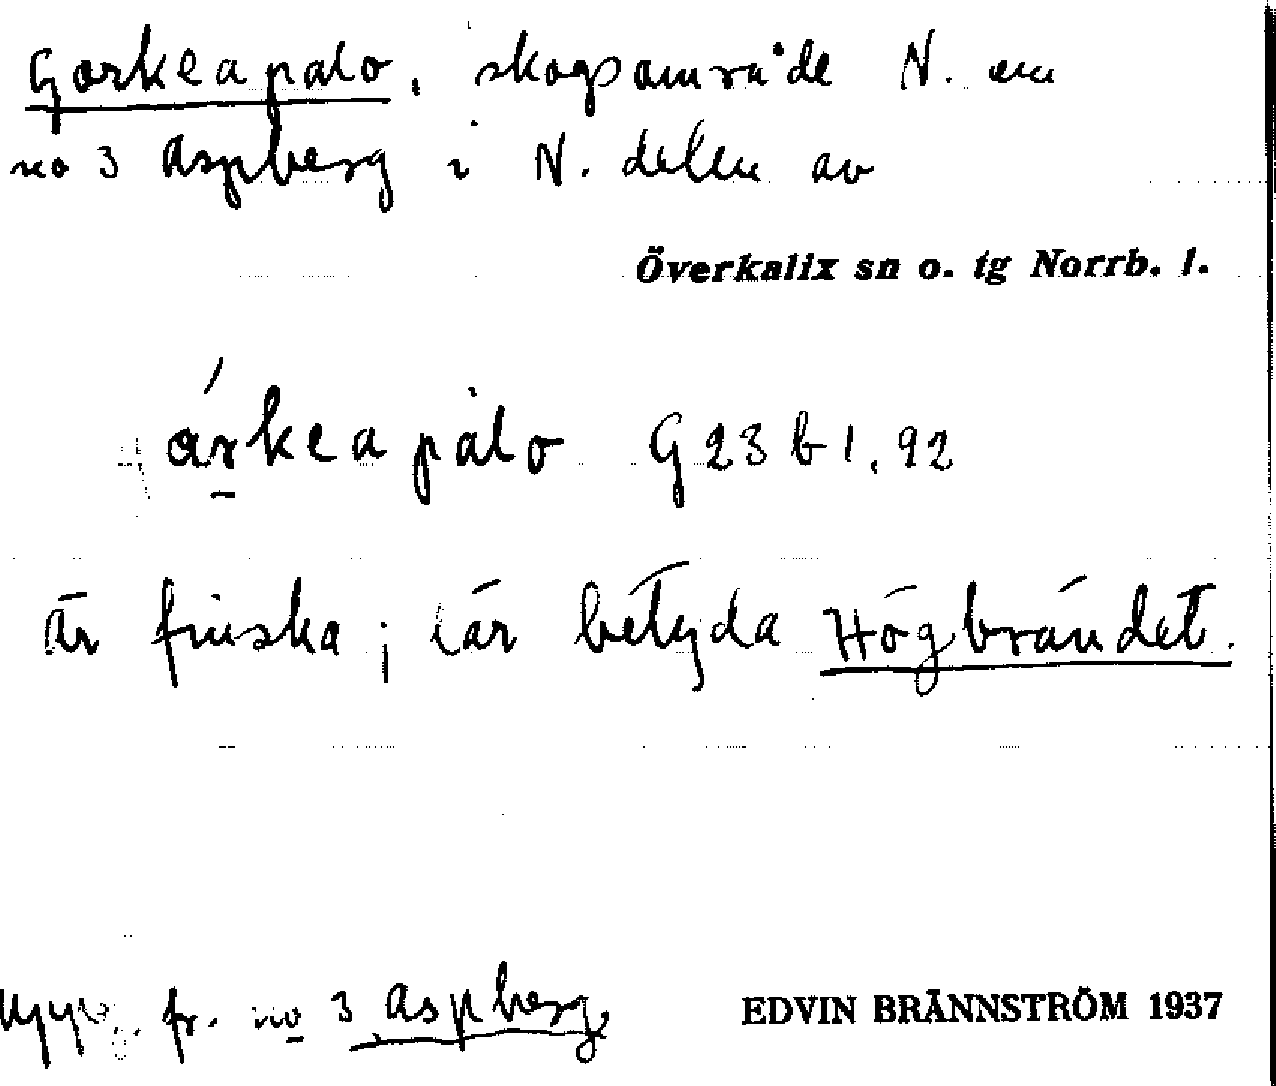 Gorkeapalo, skogsområde N. om
no 3 Aspberg i N. delen av
Överkalix sn o. tg Norrb. l.
árkeapàlo G 23 b 1, 92
Är finska; lär betyda Högbrändet.
Uppg. fr. no 3 Aspberg
EDVIN BRÄNNSTRÖM 1937